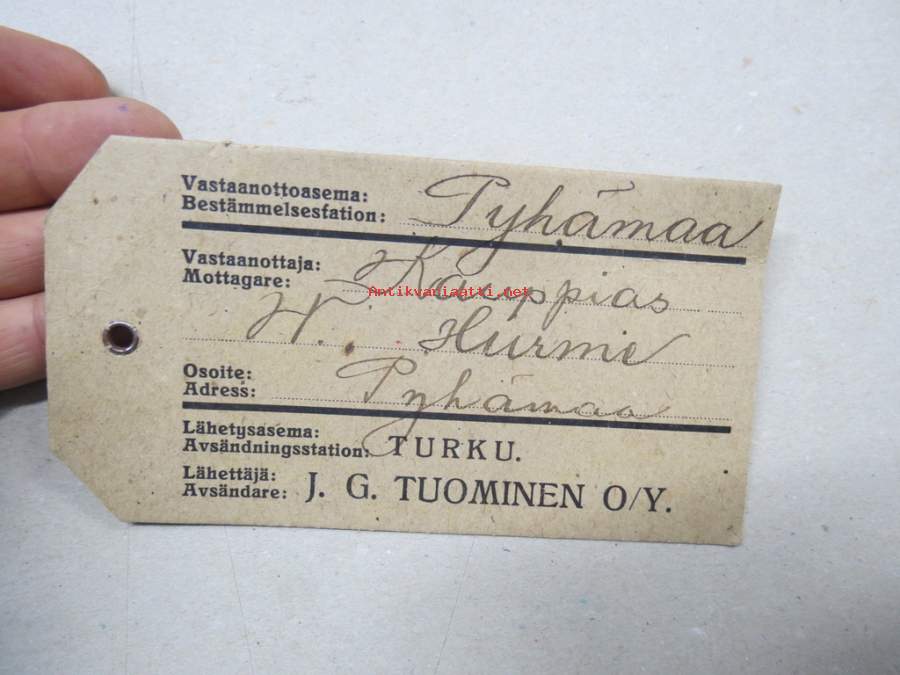 Vastaanottoasema:
Bestämmelsesfation: Pyhämaa
Vastaanottaja:
Mottagare: Kauppias
Antikvariaatti.net
Hurme
Osoite:
Adress: Pyhämaa
Lähetysasema:
Avsändningsstation: TURKU.
Lähettäjä:
Avsändare: J. G. TUOMINEN O/Y.